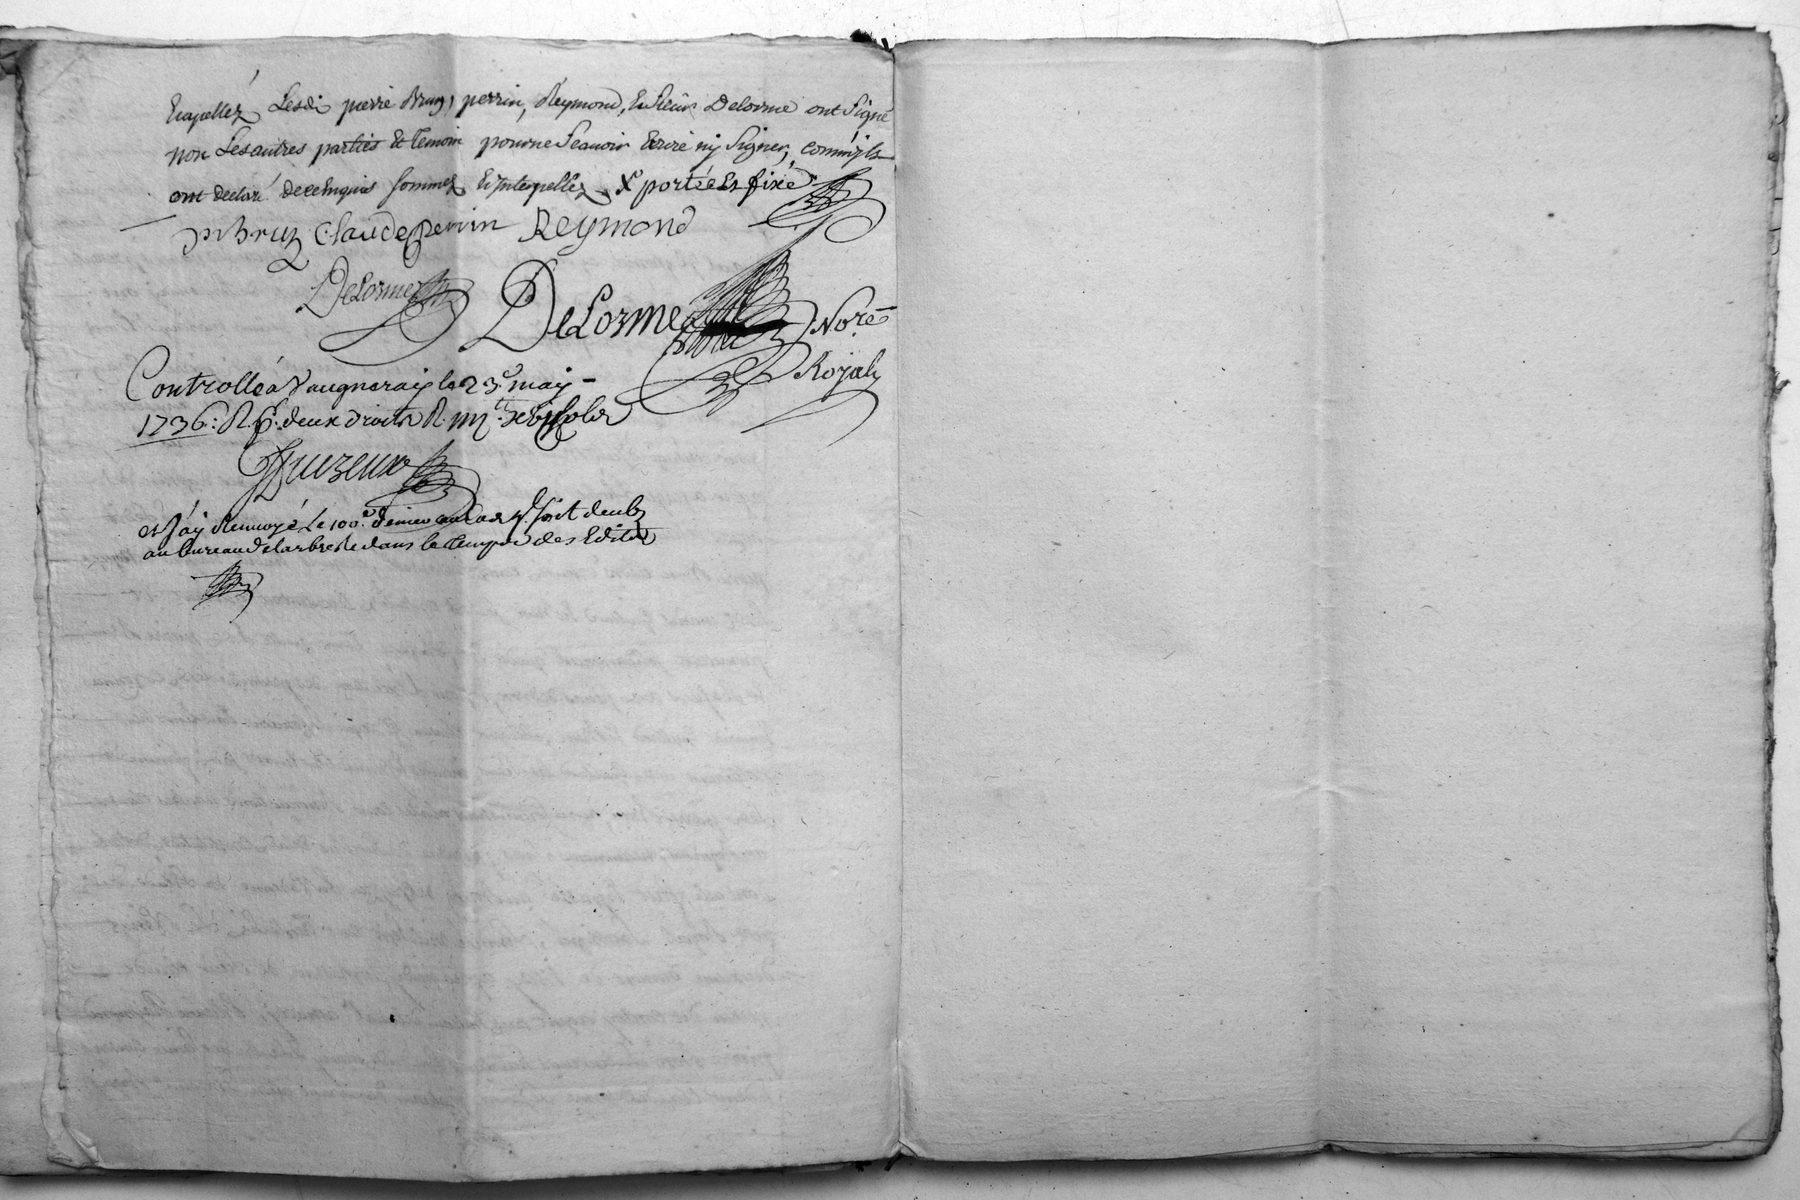 Et apellez Lesdi pierre Bruz, perrin, Reymond, Et Sieur Delorme ont Signé
non Les autres parties Et temoin pour ne Scavoir Ecrire ny Signer, comm'jls
ont declaré de ce Enquis sommez Et Jnterpellez X portée Et fixé
P Bruz Claude Perrin Reymond
DeLorme
DeLorme Nore
Royal
Controllé a Vaugneray le 23e may
1736: R. deux droits R.
Duzeux
et J'ay Renvoyé Le 100e denier
au bureau de larbresle dans le temps des Edits